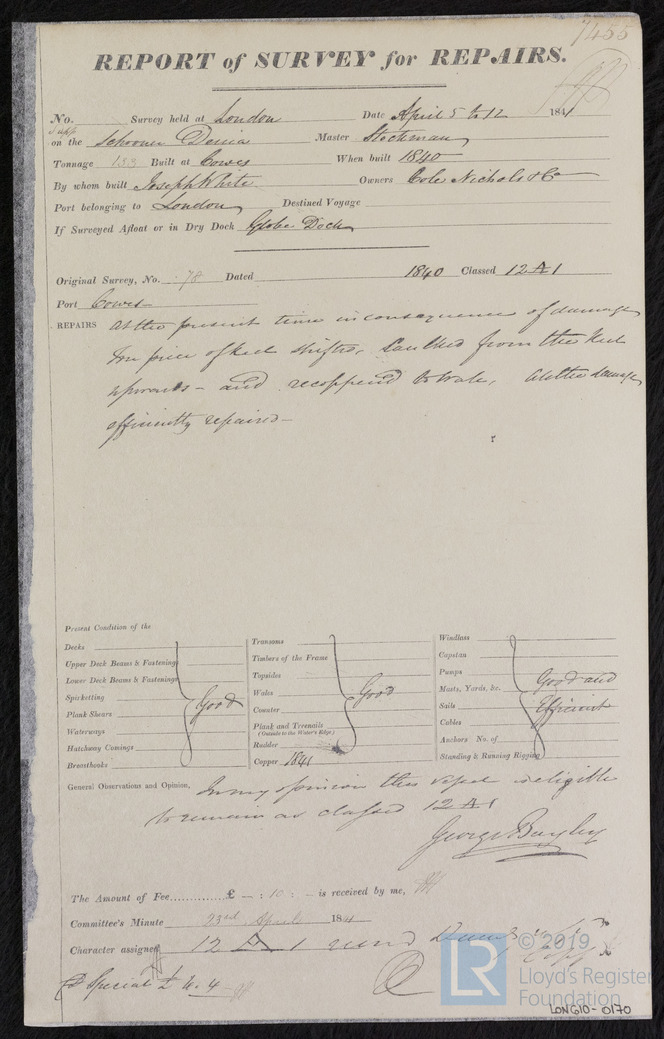 7455
REPORT of SURVEY for REPAIRS.
No. Survey held at London Date April 5 to 12 1841
on the Schooner Denia Master Stockman
Tonnage 133 Built at Cowes When built 1840
By whom built Joseph White Owners Cole Nichols & Co
Port belonging to London Destined Voyage
If Surveyed Afloat or in Dry Dock Globe Dock
Original Survey, No. 78 Dated 1840 Classed 12 A 1
Port Cowes
REPAIRS At the present time in consequence of damage
piece of keel shifted, Caulked from the keel
upwards - and recoppered to wale, all the damage
efficiently repaired -
Present Condition of the
Decks
Upper Deck Beams & Fastenings
Lower Deck Beams & Fastenings
Spirketting
Plank Shears
Waterways
Hatchway Comings
Breasthooks
Good
Transoms
Timbers of the Frame
Topsides
Wales
Counter
Plank and Treenails
(Outside to the Water's Edge.)
Rudder
Copper 1841
Good
Windlass
Capstan
Pumps
Masts, Yards, &c.
Sails
Cables
Anchors No. of
Standing & Running Rigging
Good and
Efficient
General Observations and Opinion, In my opinion this vessel is eligible
to remain as classed 12 A 1
George Bayley
The Amount of Fee............£ - : 10 : - is received by me,
Committee's Minute 23rd April 1841
Character assigned 12 A 1
Special
© 2019
LR
Lloyd's Register
Foundation
LON610-0170